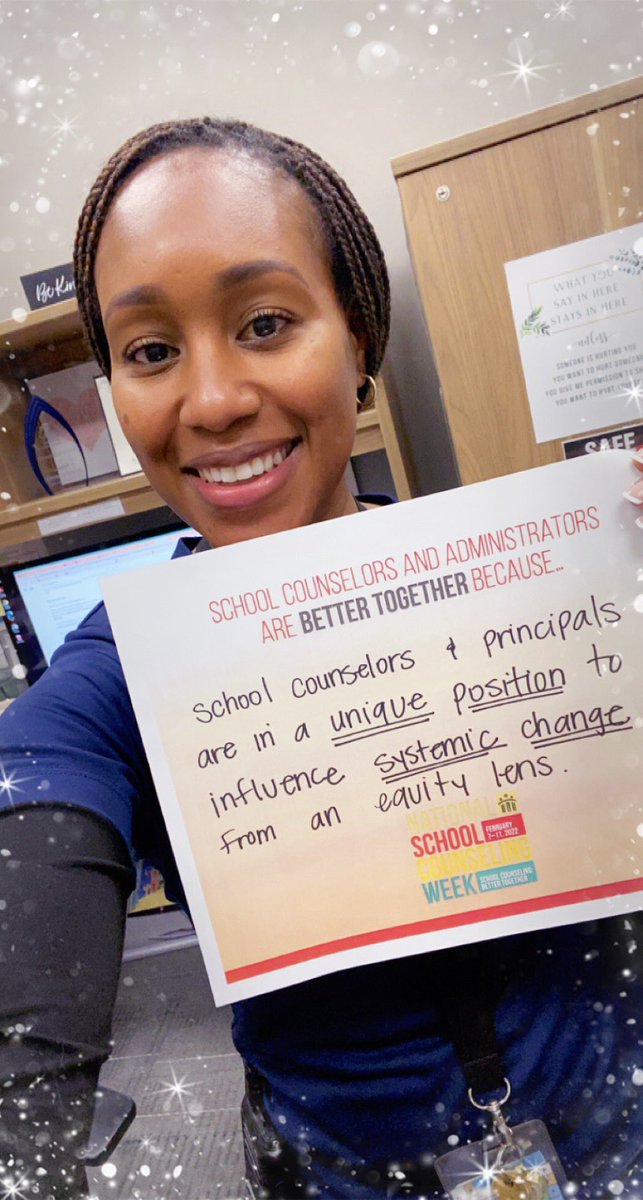 Be Kin
WHAT YOU
SAY IN HERE
STAYS IN HERE
unless..
SOMEONE IS HURTING YOU
YOU WANT TO HURT SOMEO
YOU GIVE ME PERMISSION TO SH
YOU WANT TO HURT
SAFE
SCHOOL COUNSELORS AND ADMINISTRATORS
ARE BETTER TOGETHER BECAUSE...
school counselors & principals
are in a unique position to
influence systemic change
from an equity lens.
NATIONAL
SCHOOL
FEBRUARY
7–11, 2022
COUNSELING
WEEK
SCHOOL COUNSELING:
BETTER TOGETHER